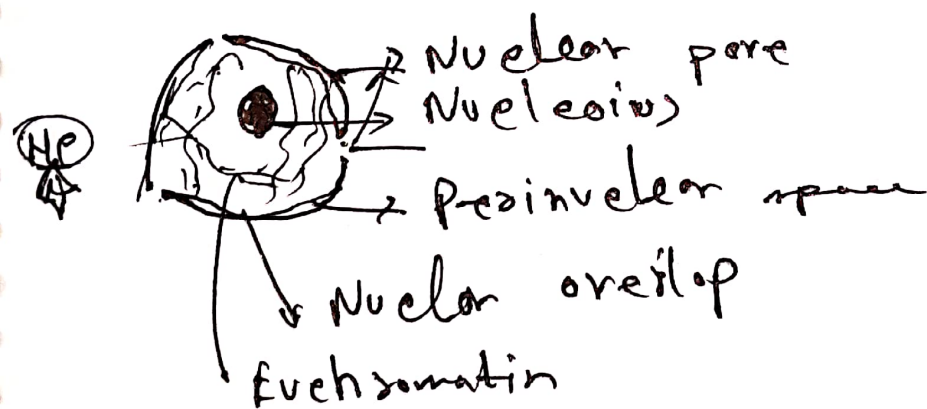 Nuclear pore
Nucleoius
HP
Perinuclear space
Nuclor overlop
Euchromatin